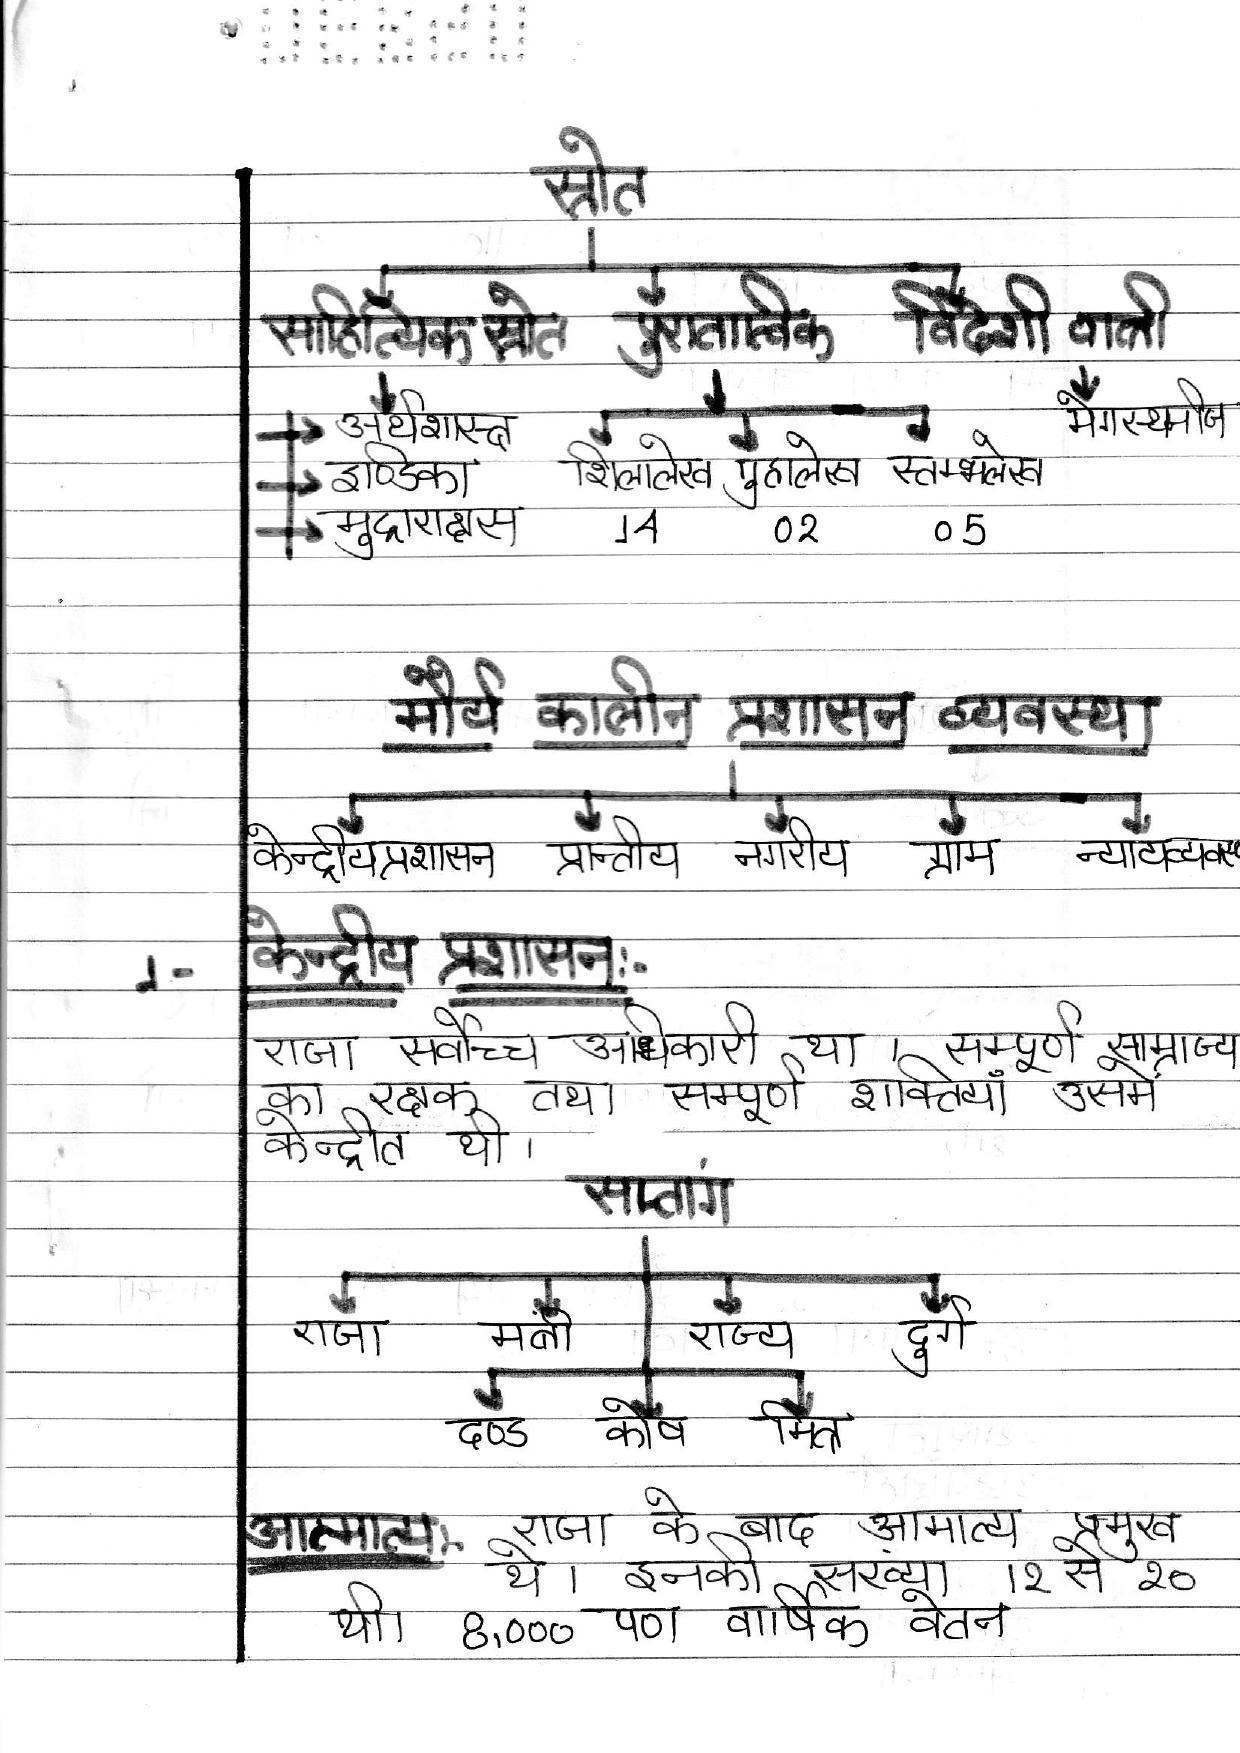 स्रोत
साहित्यिक स्रोत पुरातात्विक विदेशी वार्ता
अर्थशास्त्र मैगस्थनीज
इण्डिका शिलालेख गुहालेख स्तम्भलेख
मुद्राराक्षस 14 02 05
मौर्य कालीन प्रशासन व्यवस्था
केन्द्रीय प्रशासन प्रान्तीय नगरीय ग्राम न्यायव्यवस्
1- केन्द्रीय प्रशासन:-
राजा सर्वोच्च अधिकारी था । सम्पूर्ण साम्राज्य
का रक्षक तथा सम्पूर्ण शक्तियाँ उसमें
केन्द्रीत थी ।
सप्तांग
राजा मन्त्री राज्य दुर्ग
दण्ड कोष मित्र
आत्मात्य:- राजा के बाद आमात्य प्रमुख
थे । इनकी संख्या 12 से 20
थी। 8,000 पण वार्षिक वेतन